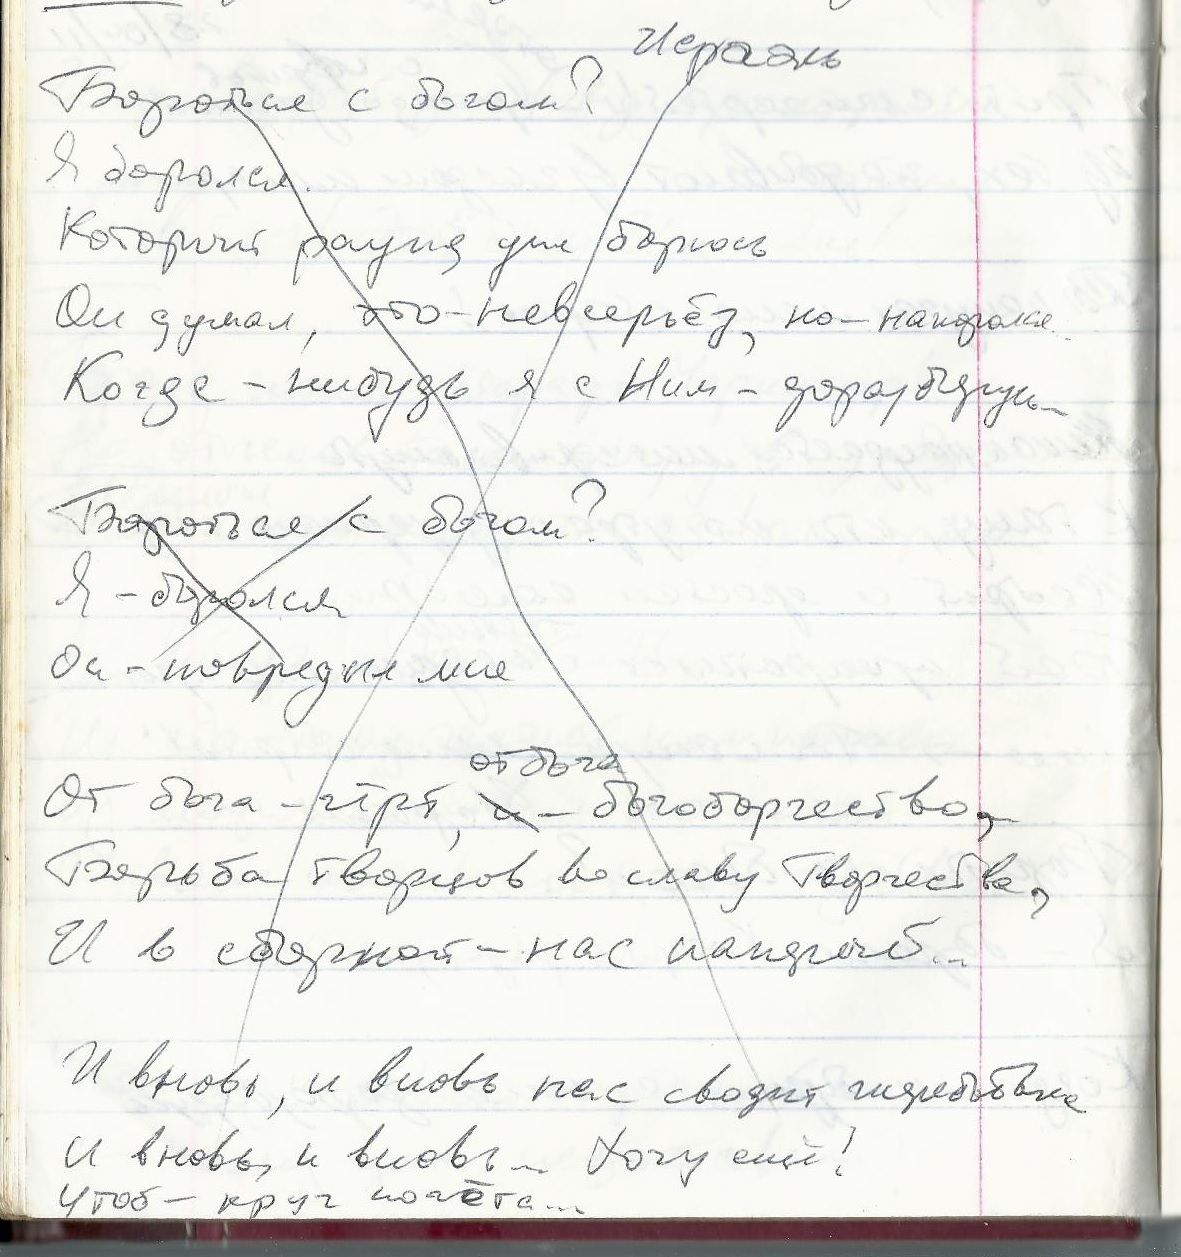 Исраэль
Бороться с богом?
Я боролся.
Который раунд уже борюсь
Он думал, это-невсерьёз, но-напоролся
Когда-нибудь я с Ним-доразберусь...
Бороться с богом?
Я-боролся
Он-повредил мне
отбога
От бога-гёрт, и-богоборчество,
Борьба творцов во славу Творчества,
И в сборной-нас
И вновь, и вновь нас сводит жеребьёвка
И вновь, и вновь... Хочу ещё!
Чтоб-круг почёта...